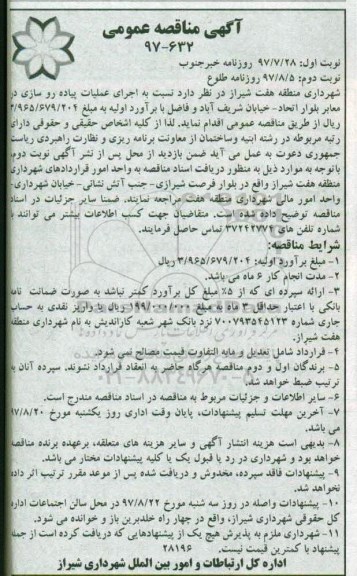 آگهی مناقصه عمومی
۹۷-۶۳۲
نوبت اول: ۹۷/۷/۲۸ روزنامه خبرجنوب
نوبت دوم: ۹۷/۸/۵ روزنامه طلوع
شهرداری منطقه هفت شیراز در نظر دارد نسبت به اجرای عملیات پیاده رو سازی در
معابر بلوار اتحاد- خیابان شریف آباد و فاضل با برآورد اولیه به مبلغ ۳/۹۶۵/۶۷۹/۲۰۴
ریال از طریق مناقصه عمومی اقدام نماید. لذا از کلیه اشخاص حقیقی و حقوقی دارای
رتبه مربوطه در رشته ابنیه وساختمان از معاونت برنامه ریزی و نظارت راهبردی ریاست
جمهوری دعوت به عمل می آید ضمن بازدید از محل پس از نشر آگهی نوبت دوم،
باتوجه به موارد ذیل به منظور دریافت اسناد مناقصه به واحد امور قراردادهای شهرداری
منطقه هفت شیراز واقع در بلوار فرصت شیرازی- جنب آتش نشانی- خیابان شهرداری-
واحد امور مالی شهرداری منطقه هفت مراجعه نمایند. ضمنا سایر جزئیات در اسناد
مناقصه توضیح داده شده است. متقاضیان جهت کسب اطلاعات بیشتر می توانند با
شماره تلفن های ۳۷۲۴۲۷۷۴ تماس حاصل فرمایند.
شرایط مناقصه:
۱- مبلغ برآورد اولیه: ۳/۹۶۵/۶۷۹/۲۰۴ ریال
۲- مدت انجام کار ۶ ماه می باشد.
۳- ارائه سپرده ای که از ۵٪ مبلغ کل برآورد کمتر نباشد به صورت ضمانت نامه
بانکی با اعتبار حداقل ۳ ماه به مبلغ ریال یا واریز نقدی به حساب
جاری شماره ۷۰۰۷۹۳۵۴۵۱۲۳ نزد بانک شهر شعبه کاراندیش به نام شهرداری منطقه
هفت شیراز.
۴- قرارداد شامل تعدیل و مابه التفاوت قیمت مصالح نمی شود.
۵- برندگان اول و دوم مناقصه هرگاه حاضر به انعقاد قرارداد نشوند. سپرده آنان به
ترتیب ضبط خواهد شد.
۶- سایر اطلاعات و جزئیات مربوط به مناقصه در اسناد مناقصه مندرج است.
۷- آخرین مهلت تسلیم پیشنهادات، پایان وقت اداری روز یکشنبه مورخ ۹۷/۸/۲۰
می باشد.
۸- بدیهی است هزینه انتشار آگهی و سایر هزینه های متعلقه، برعهده برنده مناقصه
خواهد بود و شهرداری در رد یا قبول یک یا کلیه پیشنهادات مختار می باشد.
۹- پیشنهادات فاقد سپرده، مخدوش و دریافت شده پس از موعد مقرر ترتیب اثر داده
نخواهد شد.
۱۰- پیشنهادات واصله در روز سه شنبه مورخ ۹۷/۸/۲۲ در محل سالن اجتماعات اداره
کل حقوقی شهرداری شیراز، واقع در چهار راه خلدبرین باز و خوانده می شود.
۱۱- شهرداری ملزم به پذیرش هیچ یک از پیشنهادهایی که دریافت کرده است از جمله
پیشنهاد با کمترین قیمت نیست. ۲۸۱۹۶
اداره کل ارتباطات و امور بین الملل شهرداری شیراز